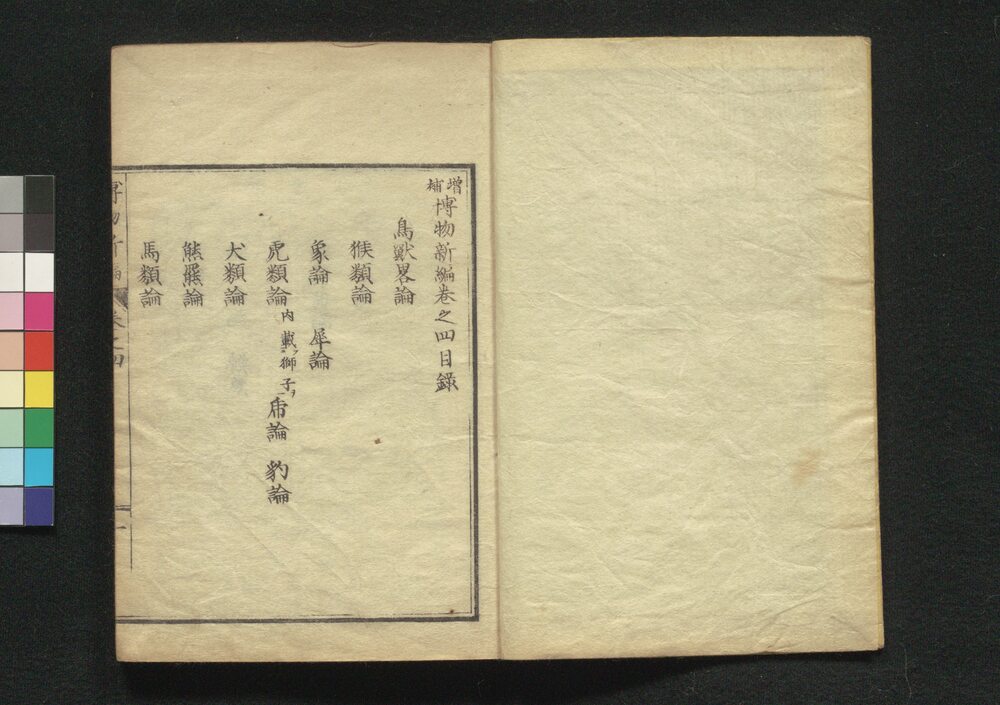 增補博物新編卷之四目錄
鳥獸畧論
猴類論
象論 犀論
虎類論 内載獅子ヲ 虎論 豹論
犬類論
熊羆論
馬類論
博物新編 卷之四 一